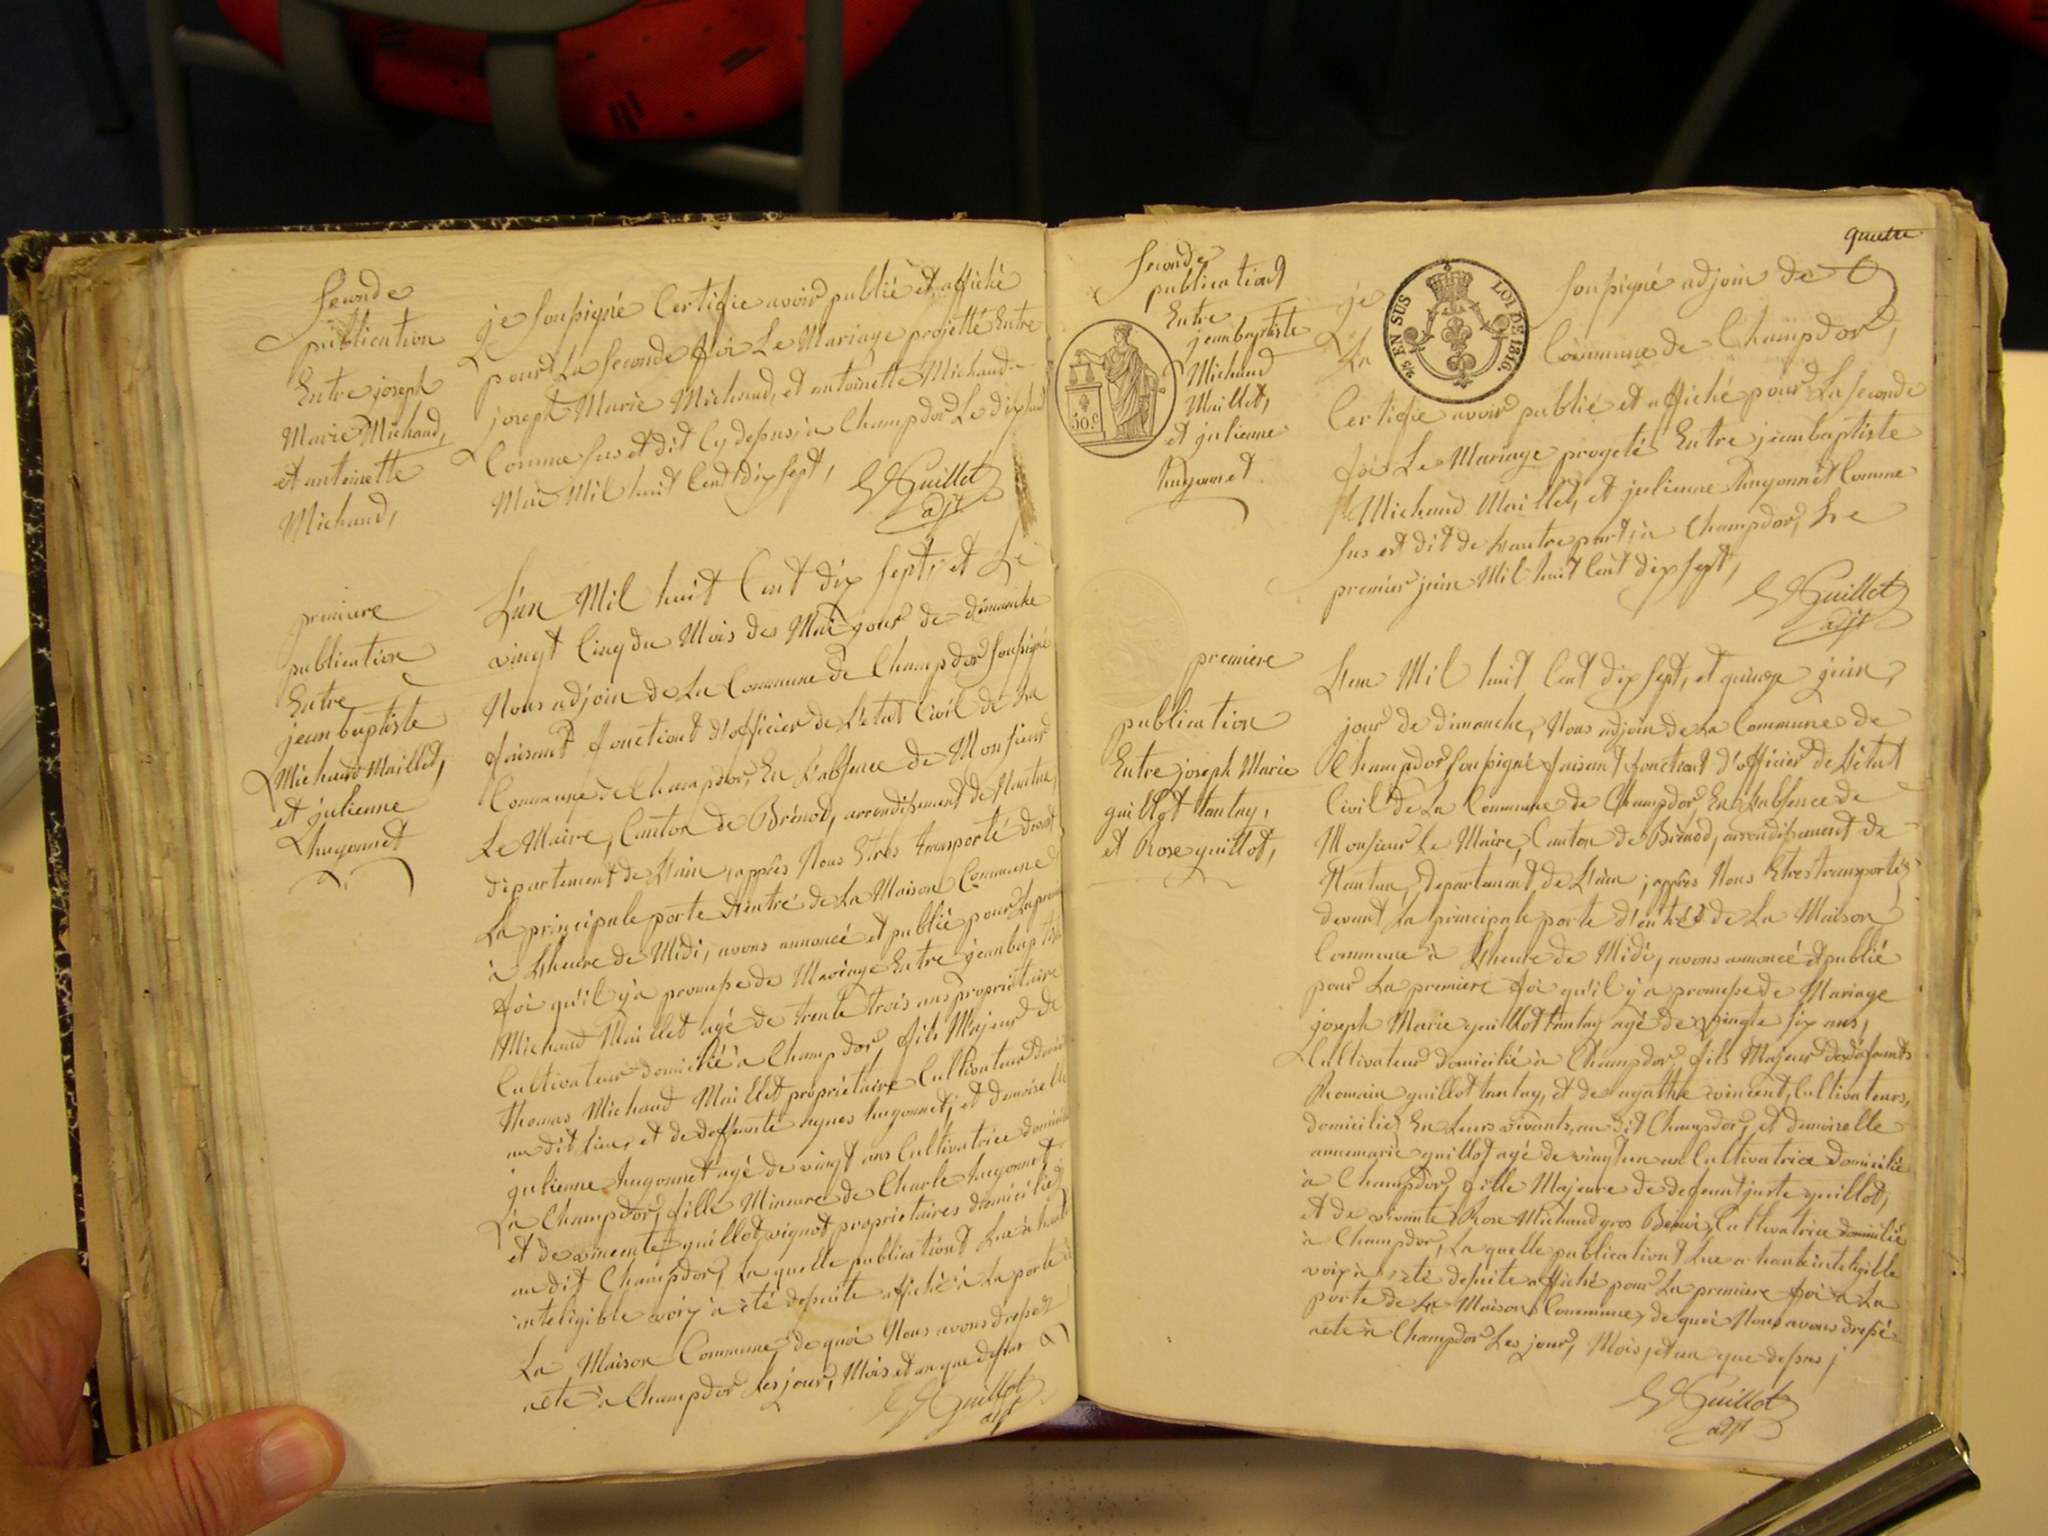 Seconde
publication
Entre joseph
Marie Michaud,
et antoinette
Michaud,
je soussigné Certifie avoir publié et affiché
pour La seconde foi Le Mariage projetté Entre
joseph Marie Michaud, et antoinette Michaud
Comme sus et dit Cy dessus, a Champdor Le dix huit
Mai Mil huit Cent dix sept,
Guillot
adjt
premiere
publication
Entre
jean baptiste
Michaud Maillet,
et julienne
hugonnet
L'an Mil huit Cent dix sept, et Le
vingt Cinq du Mois de Mai jour de dimanche
Nous adjoin de La Commune de Champdor soussigné
faisant fonctiont d'officier de L'etat Civil de La
Commune de Champdor, En L'absence de Monsieur
Le Maire, Canton de Brénod, arrondissement de Nantua,
département de L'ain, apprès Nous Etres transporté devant
La principale porte d'entré de La Maison Commune
à L'heure de Midi, avons annoncé et publié pour La premiere
foi qu'il y'a promesse de Mariage Entre jean baptiste
Michaud Maillet agé de trente trois ans propriétaire
Cultivateur domicilié à Champdor, fils Majeur de
thomas Michaud Maillet propriétaire Cultivateur
au dit Lieu, et de deffeunte agnes hugonnet; et demoiselle
julienne hugonnet agé de vingt ans Cultivatrice domicilié
à Champdor, fille Mineure de Charle hugonnet
et de vincente guillot vignot proprietaires domiciliez
au dit Champdor, La quelle publicationt Lue à haute
inteligible voix à été desuite affiché à La porte de
La Maison Commune, de quoi Nous avons dressez
acte à Champdor Les jour, Mois et an que dessus
Guillot
adjt
quatre
Seconde
publicationt
Entre
jean baptiste
Michaud
Maillet,
et julienne
hugonnet
50.C
EN SUS
LOI DE 1816.
je soussigné adjoin de
La Commune de Champdor,
Certifie avoir publié et affiché pour La seconde
foi Le Mariage progeté Entre jean baptiste
Michaud Maillet, et julienne hugonnet Comme
sus est dit de L'autre part, à Champdor, Le
premier juin Mil huit Cent dix sept,
Guillot
adjt
premiere
publication
Entre joseph Marie
guillot tantay,
et Rose guillot,
L'an Mil huit Cent dix sept, et quinze juin,
jour de dimanche, Nous adjoin de La Commune de
Champdor soussigné faisant fonctiont d'officier de L'état
Civil de La Commune de Champdor, En L'absence de
Monsieur Le Maire, Canton de Brénod, arrondissement de
Nantua, departement de L'ain; apprès Nous Etres transportéz
devant La principale porte d'entréé de La Maison
Commune à L'heure de Midi, avons annoncé et publié
pour La premiere foi qu'il y a promesse de Mariage
joseph Marie guillot tantay agé de vingte six ans,
Cultivateur domicilié à Champdor fils Majeur de défeunts
Romain guillot tantay, et de agathe vincent, Cultivateurs,
domiciliez En Leurs vivants, au dit Champdor, et demoiselle
annemarie guillot agé de vingt un an Cultivatrice domicilié
à Champdor, fille Majeure de defeunt juste guillot,
et de vivante Rose Michaud gros Benoi, Cultivatrice domicilié
à Champdor, La quelle publicationt Lue a haute inteligible
voix à été desuite affiché pour La premiere foi à La
porte de La Maison Commune, de quoi Nous avons dressé
acte à Champdor Les jour, Mois, et an que dessus;
Guillot
adjt